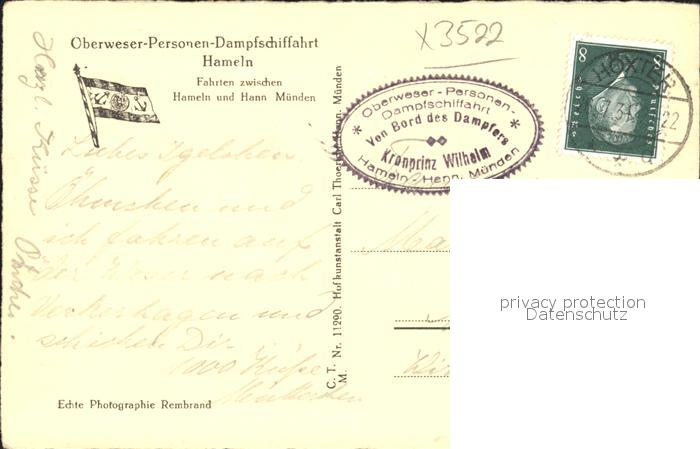 x3522
Oberweser-Personen-Dampfschiffahrt
Hameln
Fahrten zwischen
Hameln und Hann Münden
Oberweser-Personen-
Dampfschiffahrt
Von Bord des Dampfers
Kronprinz Wilhelm
Hameln-Hann. Münden
8
8
HÖXTER
Herzl. Küsse
Liebes Igelchen
Ömchen und
ich fahren auf
der Weser nach
Veckerhagen und
schicken Dir
1000 Küsse
C. T. Nr. 11290. Hofkunstanstalt Carl Thoericht, Hann. Münden
M.
Echte Photographie Rembrand
privacy protection
Datenschutz